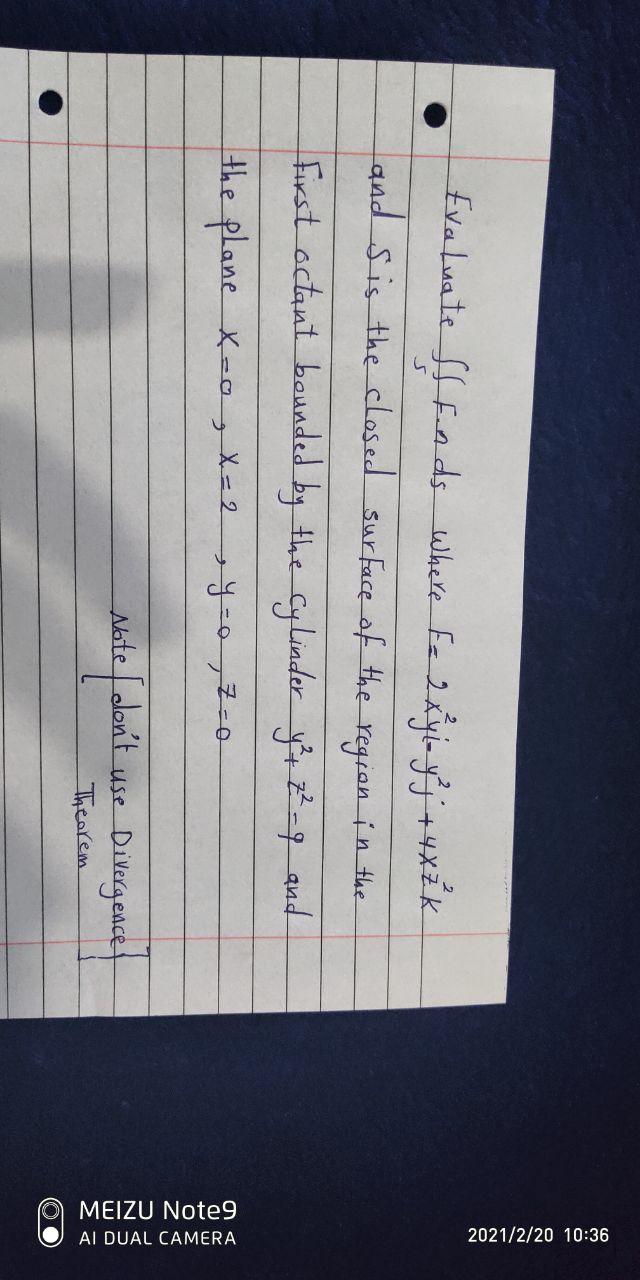 Evaluate ∫∫ F.n ds where F = 2x²yi - y²j + 4xz²k
s
and S is the closed surface of the region in the
First octant bounded by the cylinder y² + z² = 9 and
the plane x=0, x=2, y=0, z=0
Note [don't use Divergence]
Theorem
MEIZU Note9
AI DUAL CAMERA
2021/2/20 10:36